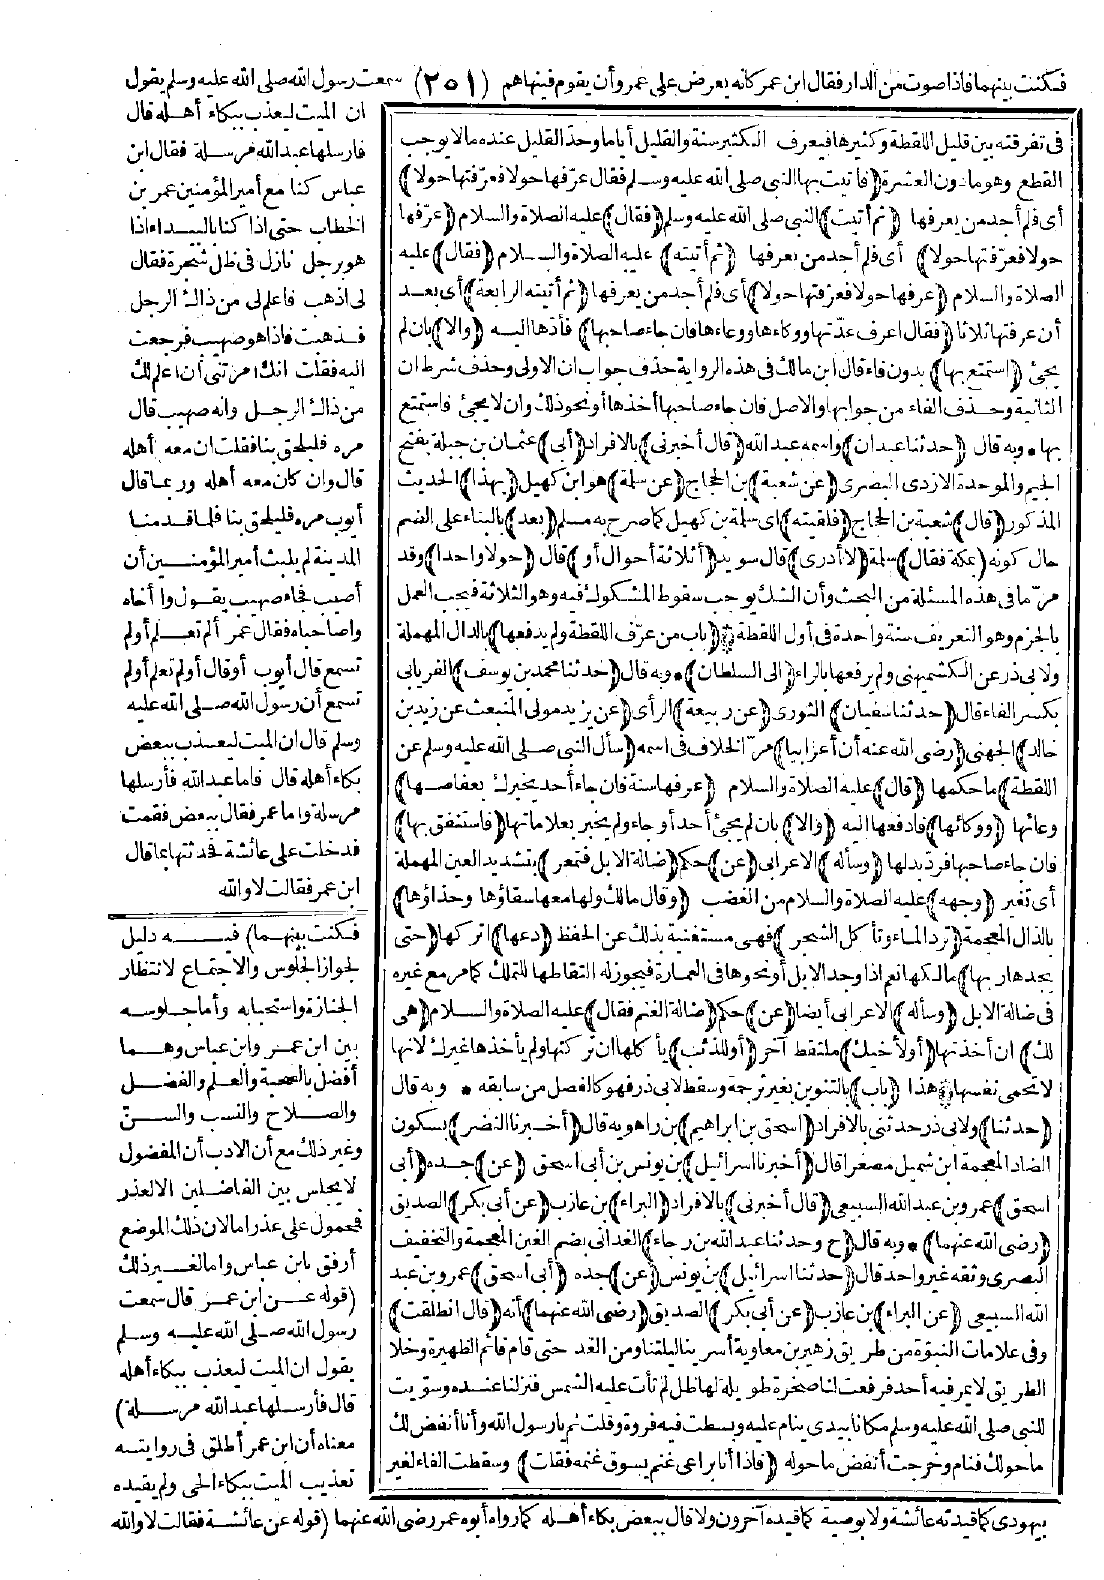 فكنت بينهما فاذا صوت من الدار فقال ابن عمر كأنه يعرض على عمر وأن يقوم فينهاهم (٢٥١) سمعت رسول الله صلى الله عليه وسلم يقول
ان الميت ليعذب ببكاء أهله قال
فارسلها عبد الله مرسلة فقال ابن
عباس كنا مع أمير المؤمنين عمر بن
الخطاب حتى اذا كنا بالبيداء اذا
هو برجل نازل فى ظل شجرة فقال
لى اذهب فاعلم لى من ذاك الرجل
فذهبت فاذا هو صهيب فرجعت
اليه فقلت انك أمرتنى أن أعلم لك
من ذاك الرجل وانه صهيب قال
مره فليلحق بنا فقلت ان معه أهله
قال وان كان معه أهله وربما قال
أيوب مره فليلحق بنا فلما قدمنا
المدينة لم يلبث أمير المؤمنين أن
أصيب فجاء صهيب يقول وا أخاه
واصاحباه فقال عمر ألم تعلم أولم
تسمع قال أيوب أو قال أولم تعلم أولم
تسمع أن رسول الله صلى الله عليه
وسلم قال ان الميت ليعذب ببعض
بكاء أهله قال فاما عبد الله فأرسلها
مرسلة واما عمر فقال ببعض فقمت
فدخلت على عائشة فحدثتها بما قال
ابن عمر فقالت لا والله
فى تفرقته بين قليل اللقطة وكثيرها فيعرف الكثير سنة والقليل أياما وحد القليل عنده ما لا يوجب
القطع وهو ما دون العشرة (فأتيت بها النبى صلى الله عليه وسلم فقال عرّفها حولا فعرّفتها حولا)
أى فلم أجد من يعرفها (ثم أتيت) النبى صلى الله عليه وسلم (فقال) عليه الصلاة والسلام (عرّفها
حولا فعرّفتها حولا) أى فلم أجد من يعرفها (ثم أتيته) عليه الصلاة والسلام (فقال) عليه
الصلاة والسلام (عرفها حولا فعرّفتها حولا) أى فلم أجد من يعرفها (ثم أتيته الرابعة) أى بعد
أن عرفتها ثلاثا (فقال اعرف عدّتها ووكاءها ووعاءها فان جاء صاحبها) فأدّها اليه (والا) بان لم
يجئ (استمتع بها) بدون فاء قال ابن مالك فى هذه الرواية حذف جواب ان الاولى وحذف شرط ان
الثانية وحذف الفاء من جوابها والاصل فان جاء صاحبها أخذها أو نحو ذلك وان لا يجئ فاستمتع
بها * وبه قال (حدثنا عبدان) واسمه عبد الله (قال أخبرنى) بالافراد (أبى) عثمان بن جبلة بفتح
الجيم والموحدة الازدى البصرى (عن شعبة) بن الحجاج (عن سلمة) هو ابن كهيل (بهذا) الحديث
المذكور (قال) شعبة بن الحجاج (فلقيته) اى سلمة بن كهيل كما صرح به مسلم (بعد) بالبناء على الضم
حال كونه (بمكة فقال) سلمة (لا أدرى) قال سويد (أثلاثة أحوال أو) قال (حولا واحدا) وقد
مرّ ما فى هذه المسئلة من البحث وأن الشك يوجب سقوط المشكوك فيه وهو الثلاثة فيجب العمل
بالجزم وهو التعريف سنة واحدة فى أول اللقطة (باب من عرّف اللقطة ولم يدفعها) بالدال المهملة
ولابى ذر عن الكشميهنى ولم يرفعها بالراء (الى السلطان) * وبه قال (حدثنا محمد بن يوسف) الفريابى
بكسر الفاء قال (حدثنا سفيان) الثورى (عن ربيعة) الرأى (عن يزيد مولى المنبعث عن زيد بن
خالد) الجهنى (رضى الله عنه أن أعرابيا) مرّ الخلاف فى اسمه (سأل النبى صلى الله عليه وسلم عن
اللقطة) ما حكمها (قال) عليه الصلاة والسلام (عرفها سنة فان جاء أحد يخبرك بعفاصها)
وعائها (ووكائها) فادفعها اليه (والا) بان لم يجئ أحد أو جاء ولم يخبر بعلاماتها (فاستنفق بها)
فان جاء صاحبها فرد بدلها (وسأله) الاعرابى (عن) حكم (ضالة الابل فتمعر) بتشديد العين المهملة
أى تغير (وجهه) عليه الصلاة والسلام من الغضب (وقال مالك ولها معها سقاؤها وحذاؤها)
بالذال المعجمة (ترد الماء وتأكل الشجر) فهى مستغنية بذلك عن الحفظ (دعها) اتركها (حتى
يجدها ربها) مالكها نعم اذا وجد الابل أو نحوها فى العمارة فيجوز له التقاطها للتملك كما مر مع غيره
فى ضالة الابل (وسأله) الاعرابى أيضا (عن) حكم (ضالة الغنم فقال) عليه الصلاة والسلام (هى
لك) ان أخذتها (أو لأخيك) ملتقط آخر (أو للذئب) يأكلها ان تركتها ولم يأخذها غيرك لانها
لا تحمى نفسها هذا (باب) بالتنوين بغير ترجمة وسقط لابى ذر فهو كالفصل من سابقه * وبه قال
(حدثنا) ولابى ذر حدثنى بالافراد (اسحق بن ابراهيم) بن راهويه قال (أخبرنا النضر) بسكون
الضاد المعجمة ابن شميل مصغرا قال (أخبرنا اسرائيل) بن يونس بن أبى اسحق (عن) جده (أبى
اسحق) عمرو بن عبد الله السبيعى (قال أخبرنى) بالافراد (البراء) بن عازب (عن أبى بكر) الصديق
(رضى الله عنهما) * وبه قال (ح وحدثنا عبد الله بن رجاء) الغدانى بضم الغين المعجمة والتخفيف
البصرى وثقه غير واحد قال (حدثنا اسرائيل) بن يونس (عن) جده (أبى اسحق) عمرو بن عبد
الله السبيعى (عن البراء) بن عازب (عن أبى بكر) الصديق (رضى الله عنهما) أنه (قال انطلقت)
وفى علامات النبوّة من طريق زهير بن معاوية أسرينا ليلتنا ومن الغد حتى قام قائم الظهيرة وخلا
الطريق لا يمر فيه أحد فرفعت لنا صخرة طويلة لها ظل لم تأت عليه الشمس فنزلنا عنده وسويت
للنبى صلى الله عليه وسلم مكانا بيدى ينام عليه وبسطت فيه فروة وقلت نم يا رسول الله وأنا أنفض لك
ما حولك فنام وخرجت أنفض ما حوله (فاذا أنا براعى غنم يسوق غنمه فقلت) وسقطت الفاء لغير
فكنت بينهما) فيه دليل
لجواز الجلوس والاجتماع لانتظار
الجنازة واستحبابه وأما جلوسه
بين ابن عمر وابن عباس وهما
أفضل بالصحبة والعلم والفضل
والصلاح والنسب والسنّ
وغير ذلك مع أن الادب أن المفضول
لا يجلس بين الفاضلين الا لعذر
فمحمول على عذر اما لان ذلك الموضع
أرفق بابن عباس واما لغير ذلك
(قوله عن ابن عمر قال سمعت
رسول الله صلى الله عليه وسلم
يقول ان الميت ليعذب ببكاء أهله
قال فأرسلها عبد الله مرسلة)
معناه أن ابن عمر أطلق فى روايته
تعذيب الميت ببكاء الحى ولم يقيده
بيهودى كما قيدته عائشة ولا بوصية كما قيده آخرون ولا قال ببعض بكاء أهله كما رواه أبوه عمر رضى الله عنهما (قوله عن عائشة فقالت لا والله